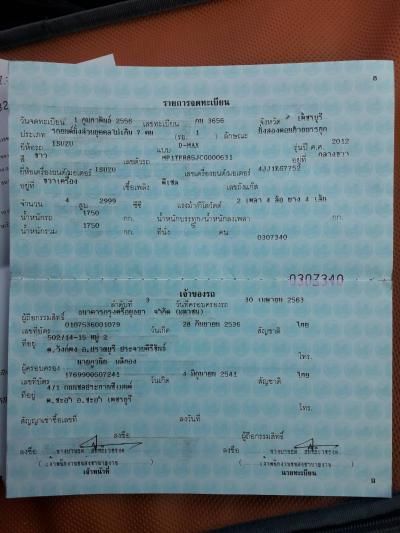 8
รายการจดทะเบียน
วันจดทะเบียน 1 กุมภาพันธ์ 2556 เลขทะเบียน กฉ 3656 จังหวัด เพชรบุรี
ประเภท รถยนต์นั่งส่วนบุคคลไม่เกิน 7 คน (รย. 1 ) ลักษณะ นั่งสองตอนท้ายบรรทุก
ยี่ห้อรถ ISUZU แบบ D-MAX รุ่นปี ค.ศ. 2012
สี ขาว เลขตัวรถ MP1TFR85JCG000631 อยู่ที่ กลางขวา
ยี่ห้อเครื่องยนต์/มอเตอร์ ISUZU เลขเครื่องยนต์/มอเตอร์ 4JJ1KG7752
อยู่ที่ ขวาเครื่อง เชื้อเพลิง ดีเซล เลขถังแก๊ส
จำนวน 4 สูบ 2999 ซีซี แรงม้า/กิโลวัตต์ 2 เพลา 4 ล้อ ยาง 4 เส้น
น้ำหนักรถ 1750 กก. น้ำหนักบรรทุก/น้ำหนักลงเพลา กก.
น้ำหนักรวม 1750 กก. ที่นั่ง คน
0307340
0307340
เจ้าของรถ
ลำดับที่ 3 วันที่ครอบครองรถ 10 เมษายน 2563
ผู้ถือกรรมสิทธิ์ ธนาคารกรุงศรีอยุธยา จำกัด (มหาชน)
เลขที่บัตร 0107536001079 วันเกิด 28 กันยายน 2536 สัญชาติ ไทย
ที่อยู่ 502/14-15 หมู่ 2
ต.วังก์พง อ.ปราณบุรี ประจวบคีรีขันธ์ โทร.
ผู้ครอบครอง
เลขที่บัตร 1769900507241 วันเกิด 4 มิถุนายน 2541 สัญชาติ ไทย
ที่อยู่ 4/1
ต.ชะอำ อ.ชะอำ เพชรบุรี โทร.
สัญญาเช่าซื้อเลขที่ ลงวันที่
ลงชื่อ ผู้ถือกรรมสิทธิ์
ลงชื่อ ลงชื่อ
เจ้าหน้าที่ นายทะเบียน